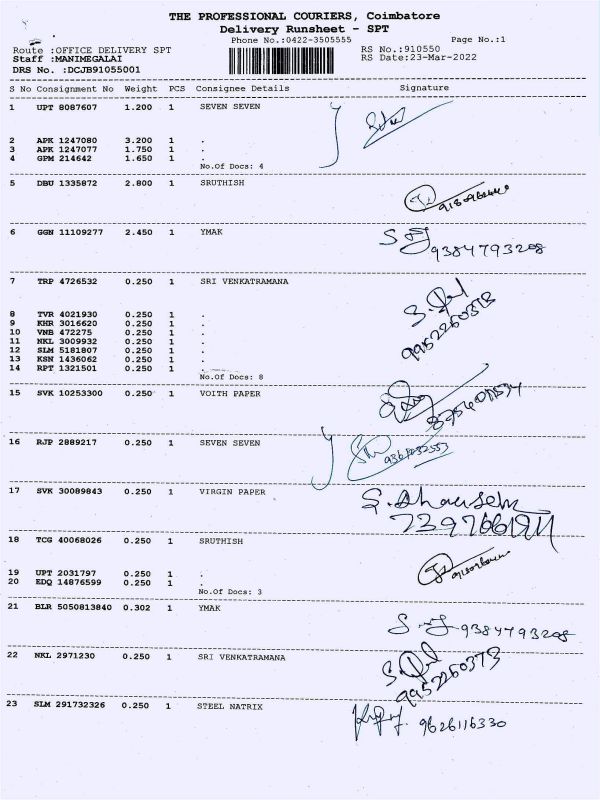 THE PROFESSIONAL COURIERS, Coimbatore
Delivery Runsheet - SPT
Phone No.:0422-3505555 Page No.:1
Route :OFFICE DELIVERY SPT RS No.:910550
Staff :MANIMEGALAI RS Date:23-Mar-2022
DRS No. :DCJB91055001
S No Consignment No Weight PCS Consignee Details Signature
1 UPT 8087607 1.200 1 SEVEN SEVEN
2 APK 1247080 3.200 1 .
3 APK 1247077 1.750 1 .
4 GPM 214642 1.650 1 .
No.Of Docs: 4
5 DBU 1335872 2.800 1 SRUTHISH
6 GGN 11109277 2.450 1 YMAK
9384793208
7 TRP 4726532 0.250 1 SRI VENKATRAMANA
9952260373
8 TVR 4021930 0.250 1 .
9 KHR 3016620 0.250 1 .
10 VNB 472275 0.250 1 .
11 NKL 3009932 0.250 1 .
12 SLM 5181807 0.250 1 .
13 KSN 1436062 0.250 1 .
14 RPT 1321501 0.250 1 .
No.Of Docs: 8
15 SVK 10253300 0.250 1 VOITH PAPER
16 RJP 2889217 0.250 1 SEVEN SEVEN
17 SVK 30089843 0.250 1 VIRGIN PAPER
18 TCG 40068026 0.250 1 SRUTHISH
19 UPT 2031797 0.250 1 .
20 EDQ 14876599 0.250 1 .
No.Of Docs: 3
21 BLR 5050813840 0.302 1 YMAK
9384793208
22 NKL 2971230 0.250 1 SRI VENKATRAMANA
9952260373
23 SLM 291732326 0.250 1 STEEL NATRIX
9626116330